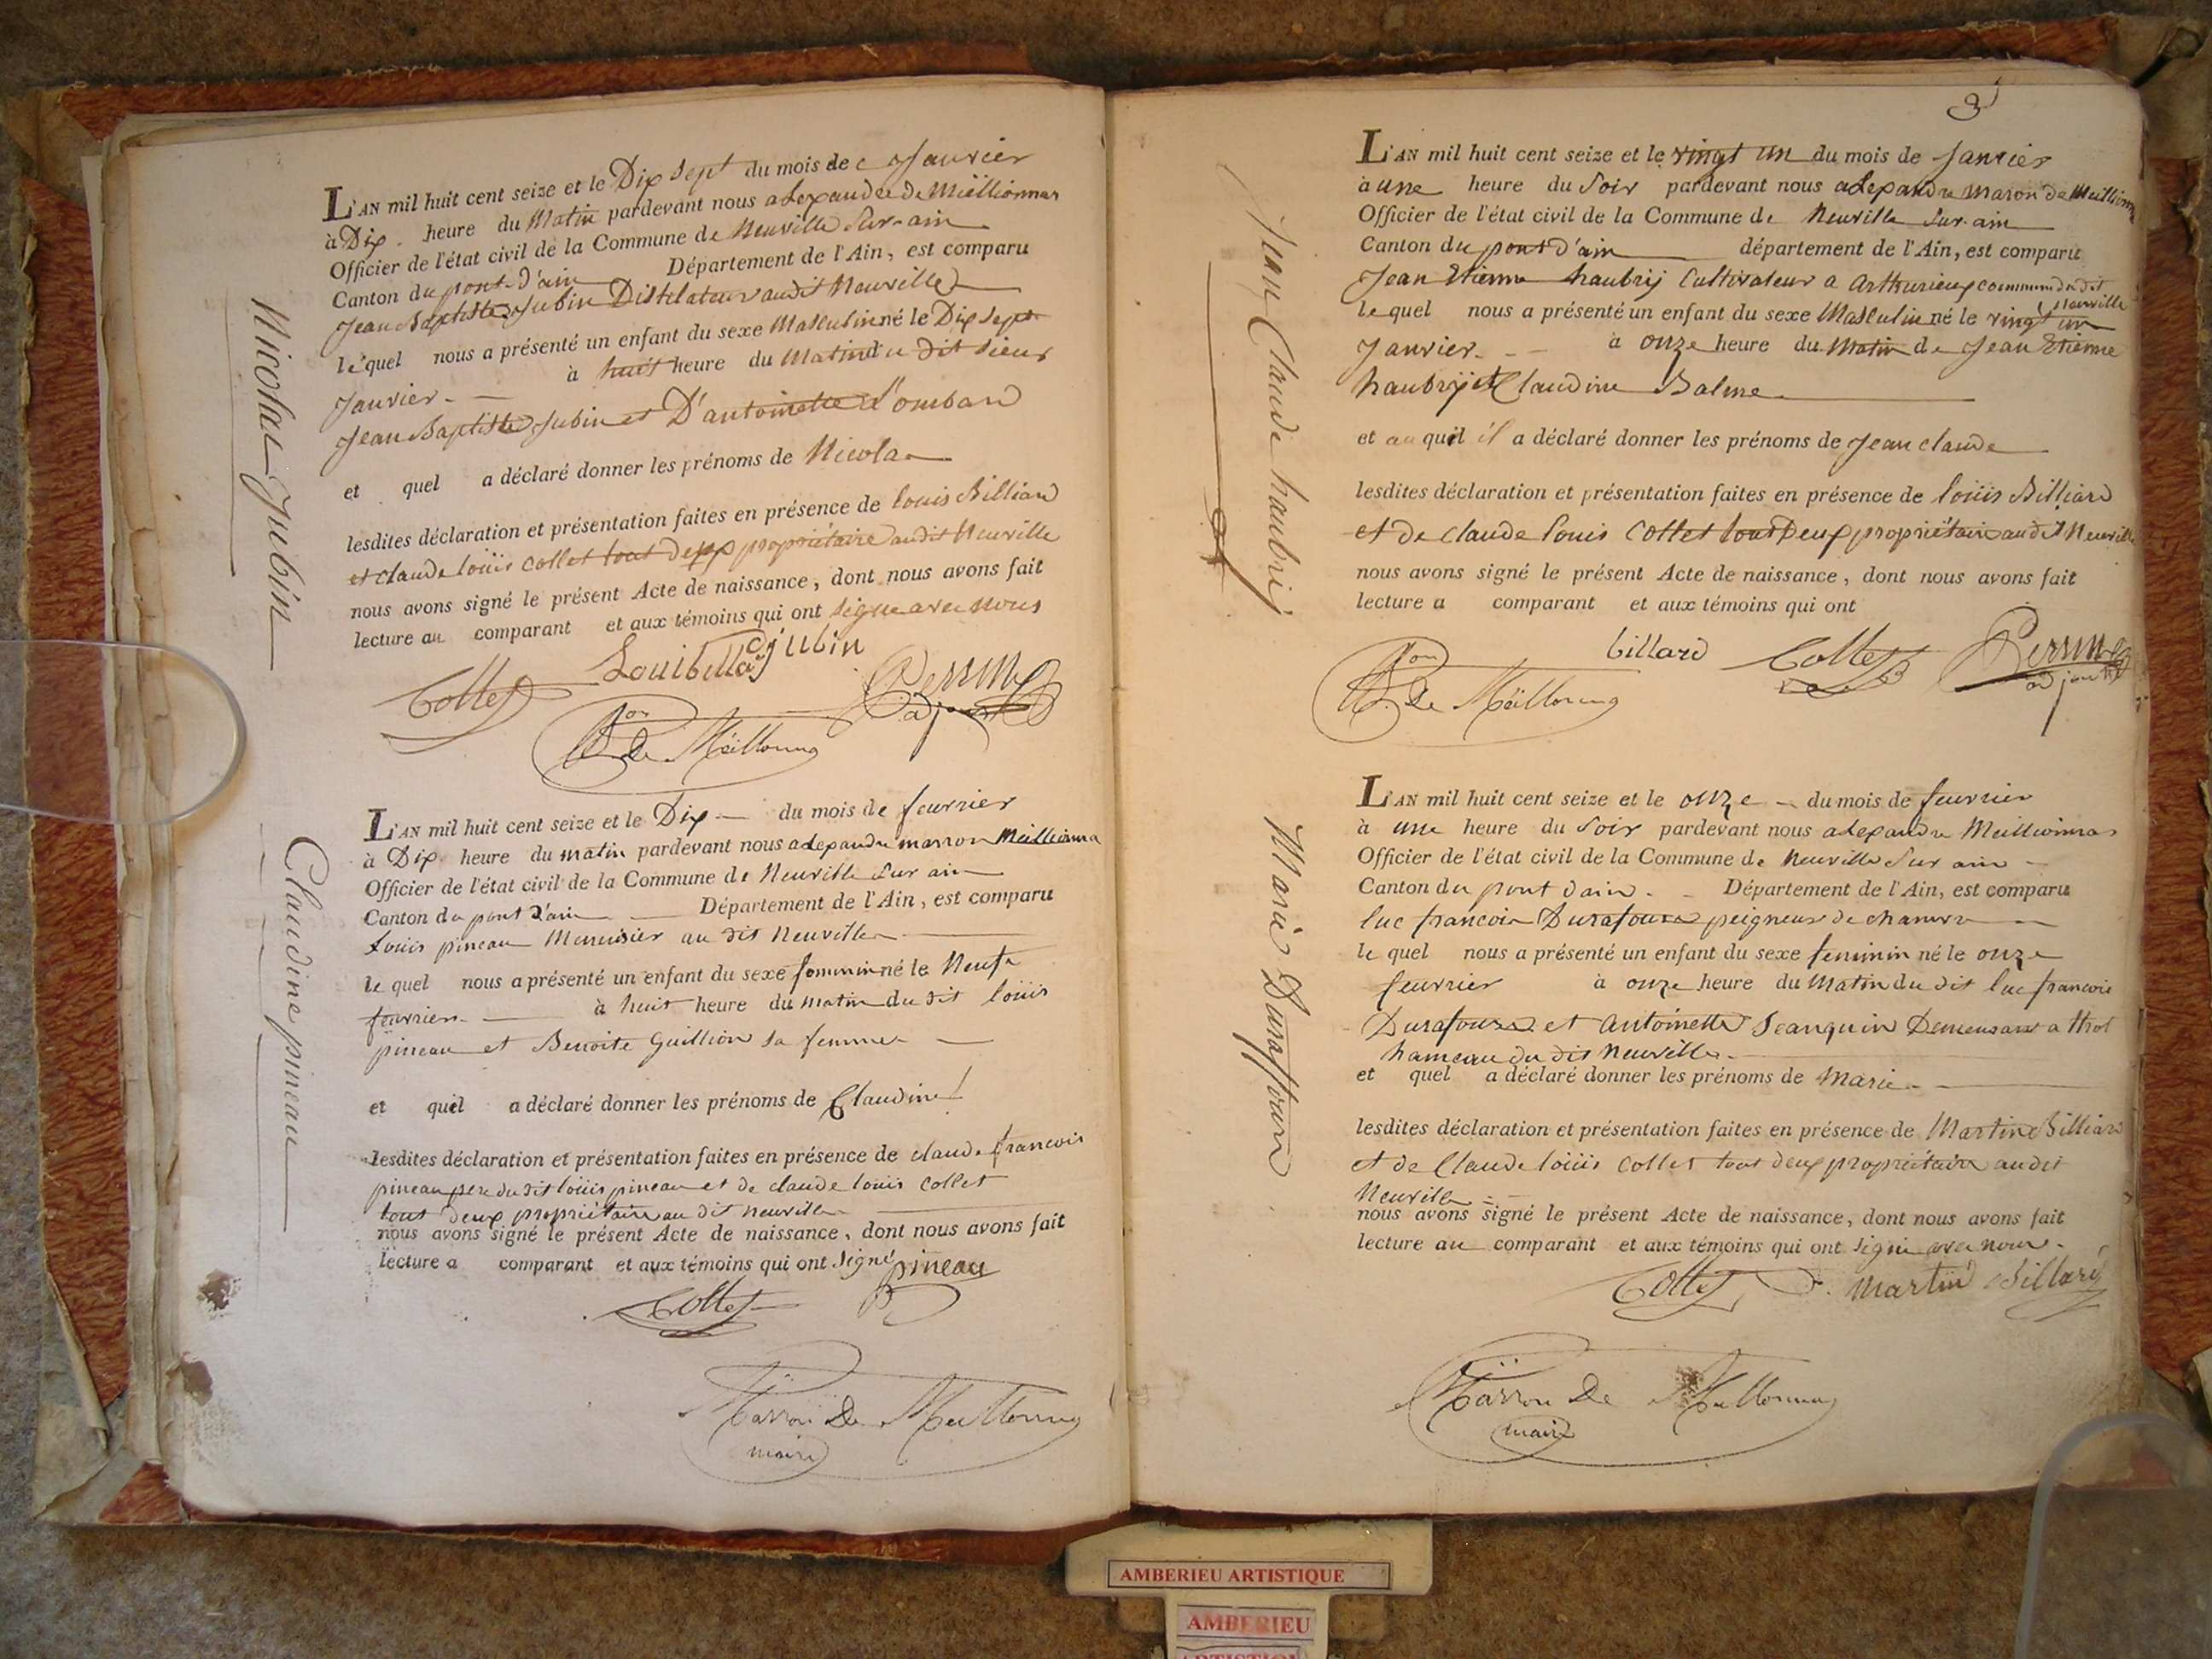 Nicolas Jubin
L'AN mil huit cent seize et le Dix Sept du mois de Janvier
à Dix heure du Matin pardevant nous alexandre de Meillionnas
Officier de l'état civil de la Commune de Neuville Sur-ain
Canton du pont-D'ain Département de l'Ain, est comparu
Jean Baptiste Jubin Distilateur audit Neuville
le quel nous a présenté un enfant du sexe Masculin né le Dix Sept
Janvier à huit heure du Matin du dit Sieur
Jean Baptiste Jubin et D'antoinette Lombard
et quel a déclaré donner les prénoms de Nicolas
lesdites déclaration et présentation faites en présence de Louis Billiard
et claude Loüis Collet tout deux propriétaire audit Neuville
nous avons signé le présent Acte de naissance, dont nous avons fait
lecture au comparant et aux témoins qui ont signe avec nous
jubin
Collet
Perrin
adjoint
De Meillonnas
Claudine pineau
L'AN mil huit cent seize et le Dix du mois de fevrier
à Dix heure du matin pardevant nous alexandre marron Meillionna
Officier de l'état civil de la Commune de Neuville Sur ain
Canton du pont d'ain Département de l'Ain, est comparu
Louis pineau Menuisier au dit Neuville
le quel nous a présenté un enfant du sexe feminin né le Neuf
fevrier à huit heure du matin du dit loüis
pineau et Benoite Guillion sa femme
et quel a déclaré donner les prénoms de Claudine
lesdites déclaration et présentation faites en présence de claude francois
pineau pere du dit loüis pineau et de claude louis Collet
tout deux propriétaire au dit neuville
nous avons signé le présent Acte de naissance, dont nous avons fait
lecture a comparant et aux témoins qui ont signé
pineau
Collet
Marron De Meillonnas
maire
3
Jean Claude haubrij
L'AN mil huit cent seize et le vingt un du mois de Janvier
à une heure du Soir pardevant nous alexandre maron de Meillionnas
Officier de l'état civil de la Commune de Neuville Sur-ain
Canton du pont d'ain département de l'Ain, est comparu
Jean Etienne haubrij Cultivateur a Arthurieux commune dudit
Neuville
le quel nous a présenté un enfant du sexe Masculin né le vingt un
Janvier à onze heure du Matin de Jean Etienne
haubrij et Claudine Balme
et au quel il a déclaré donner les prénoms de Jean claude
lesdites déclaration et présentation faites en présence de loüis Billiard
et de claude louis Collet tout Deux propriétaire audit Neuville
nous avons signé le présent Acte de naissance, dont nous avons fait
lecture a comparant et aux témoins qui ont
billard Collet Perrin
adjoint
De Meillonnas
Marie Duraffourd
L'AN mil huit cent seize et le onze du mois de fevrier
à une heure du Soir pardevant nous alexandre Meillionnas
Officier de l'état civil de la Commune de Neuville Sur ain
Canton du pont dain Département de l'Ain, est comparu
luc francois Durafour peigneur de chanvre
le quel nous a présenté un enfant du sexe feminin né le onze
fevrier à onze heure du Matin du dit luc francois
Durafour et Antoinette Jeanquin Demeurant a thol
hameau du dit Neuville
et quel a déclaré donner les prénoms de Marie
lesdites déclaration et présentation faites en présence de Martin Billiard
et de Claude loüis collet tout deux propriétaire au dit
Neuville
nous avons signé le présent Acte de naissance, dont nous avons fait
lecture au comparant et aux témoins qui ont signé avec nous
Collet Martin Billard
Marron De Meillonnas
maire
AMBERIEU ARTISTIQUE
AMBERIEU
ARTISTIQUE